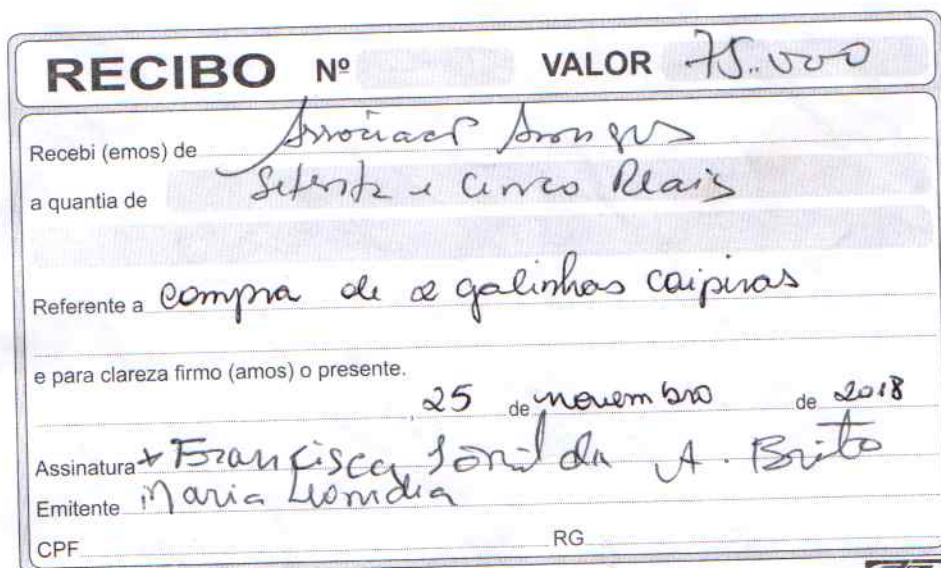 RECIBO Nº VALOR 75.000
Recebi (emos) de
a quantia de Setenta e Cinco Reais
Referente a compra de 2 galinhas caipiras
e para clareza firmo (amos) o presente.
, 25 de novembro de 2018
Assinatura Francisca A. Brito
Emitente Maria
CPF RG